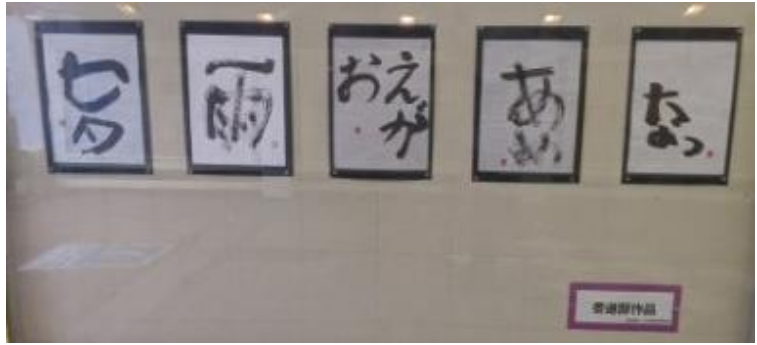 七夕
雨
えが
お
あめ
なつ
書道部作品